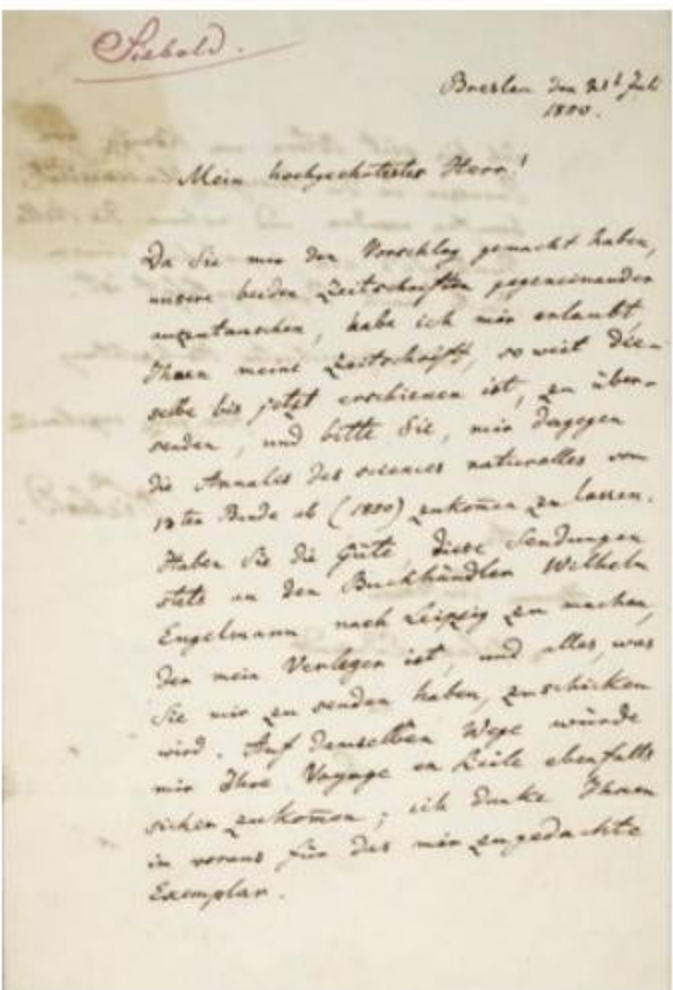 Siebold.
Breslau den 21t Juli
1850.
Mein hochgeehrtester Herr!
Da Sie mir den Vorschlag gemacht haben,
unsere beiden Zeitschriften gegeneinander
auszutauschen, habe ich mir erlaubt
Ihnen meine Zeitschrift, so weit die-
selbe bis jetzt erschienen ist, zu über-
senden, und bitte Sie, mir dagegen
die Annales des sciences naturelles vom
13ten Bande ab (1850) zukom̄en zu lassen.
Haben Sie die Güte, diese Sendungen
stets an den Buchhändler Wilhelm
Engelmann nach Leipzig zu machen,
der mein Verleger ist, und alles, was
Sie mir zu senden haben, zuschicken
wird. Auf demselben Wege würde
mir Ihre Voyage en Sicile ebenfalls
sicher zukom̄en; ich danke Ihnen
im voraus für das mir zugedachte
Exemplar.